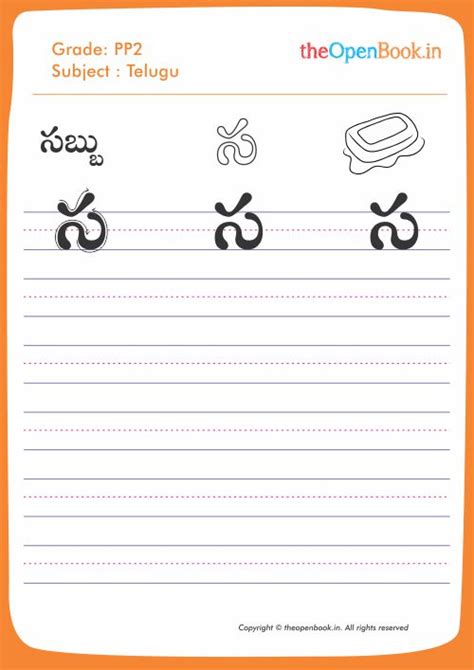 Grade: PP2
theOpenBook.in
Subject : Telugu
సబ్బు స
స స స
Copyright © theopenbook.in. All rights reserved